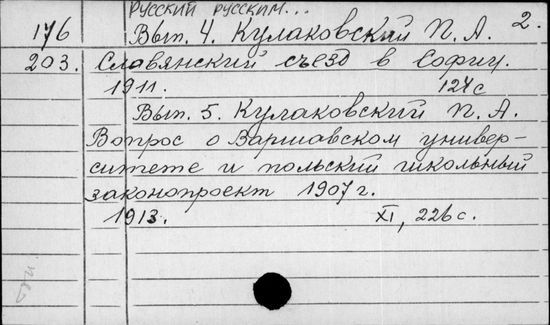 Русский русским...
176 Вып. 4. Кулаковский П. А. 2.
203. Славянский съезд в Софии.
1911. 124с
Вып. 5. Кулаковский П. А.
Вопрос о Варшавском универ-
ситете и польский школьный
законопроект 1907 г.
1913. XI, 226 с.